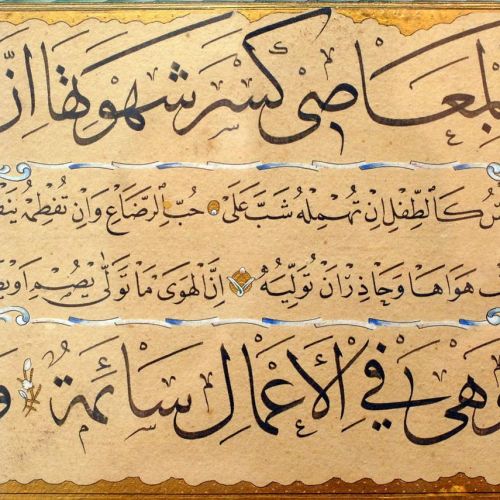 كَسْرَ شَهْوَتِهَا اِنَّ
كَالطِّفْلِ اِنْ تُهْمِلْهُ شَبَّ عَلٰى حُبِّ الرَّضَاعِ وَاِنْ تَفْطِمْهُ
هَوَاهَا وَحَاذِرْ اَنْ تُوَلِّيَهُ اِنَّ الْهَوٰى مَا تَوَلّٰى يُصْمِ اَوْ
وَهْىَ فِى الْاَعْمَالِ سَائِمَةٌ